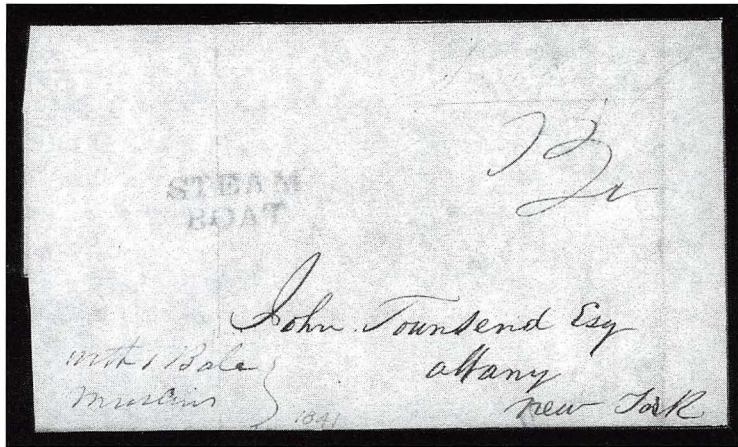 STEAM
BOAT
John Townsend Esq
albany
new York
with 1 Bale
muslins
1841